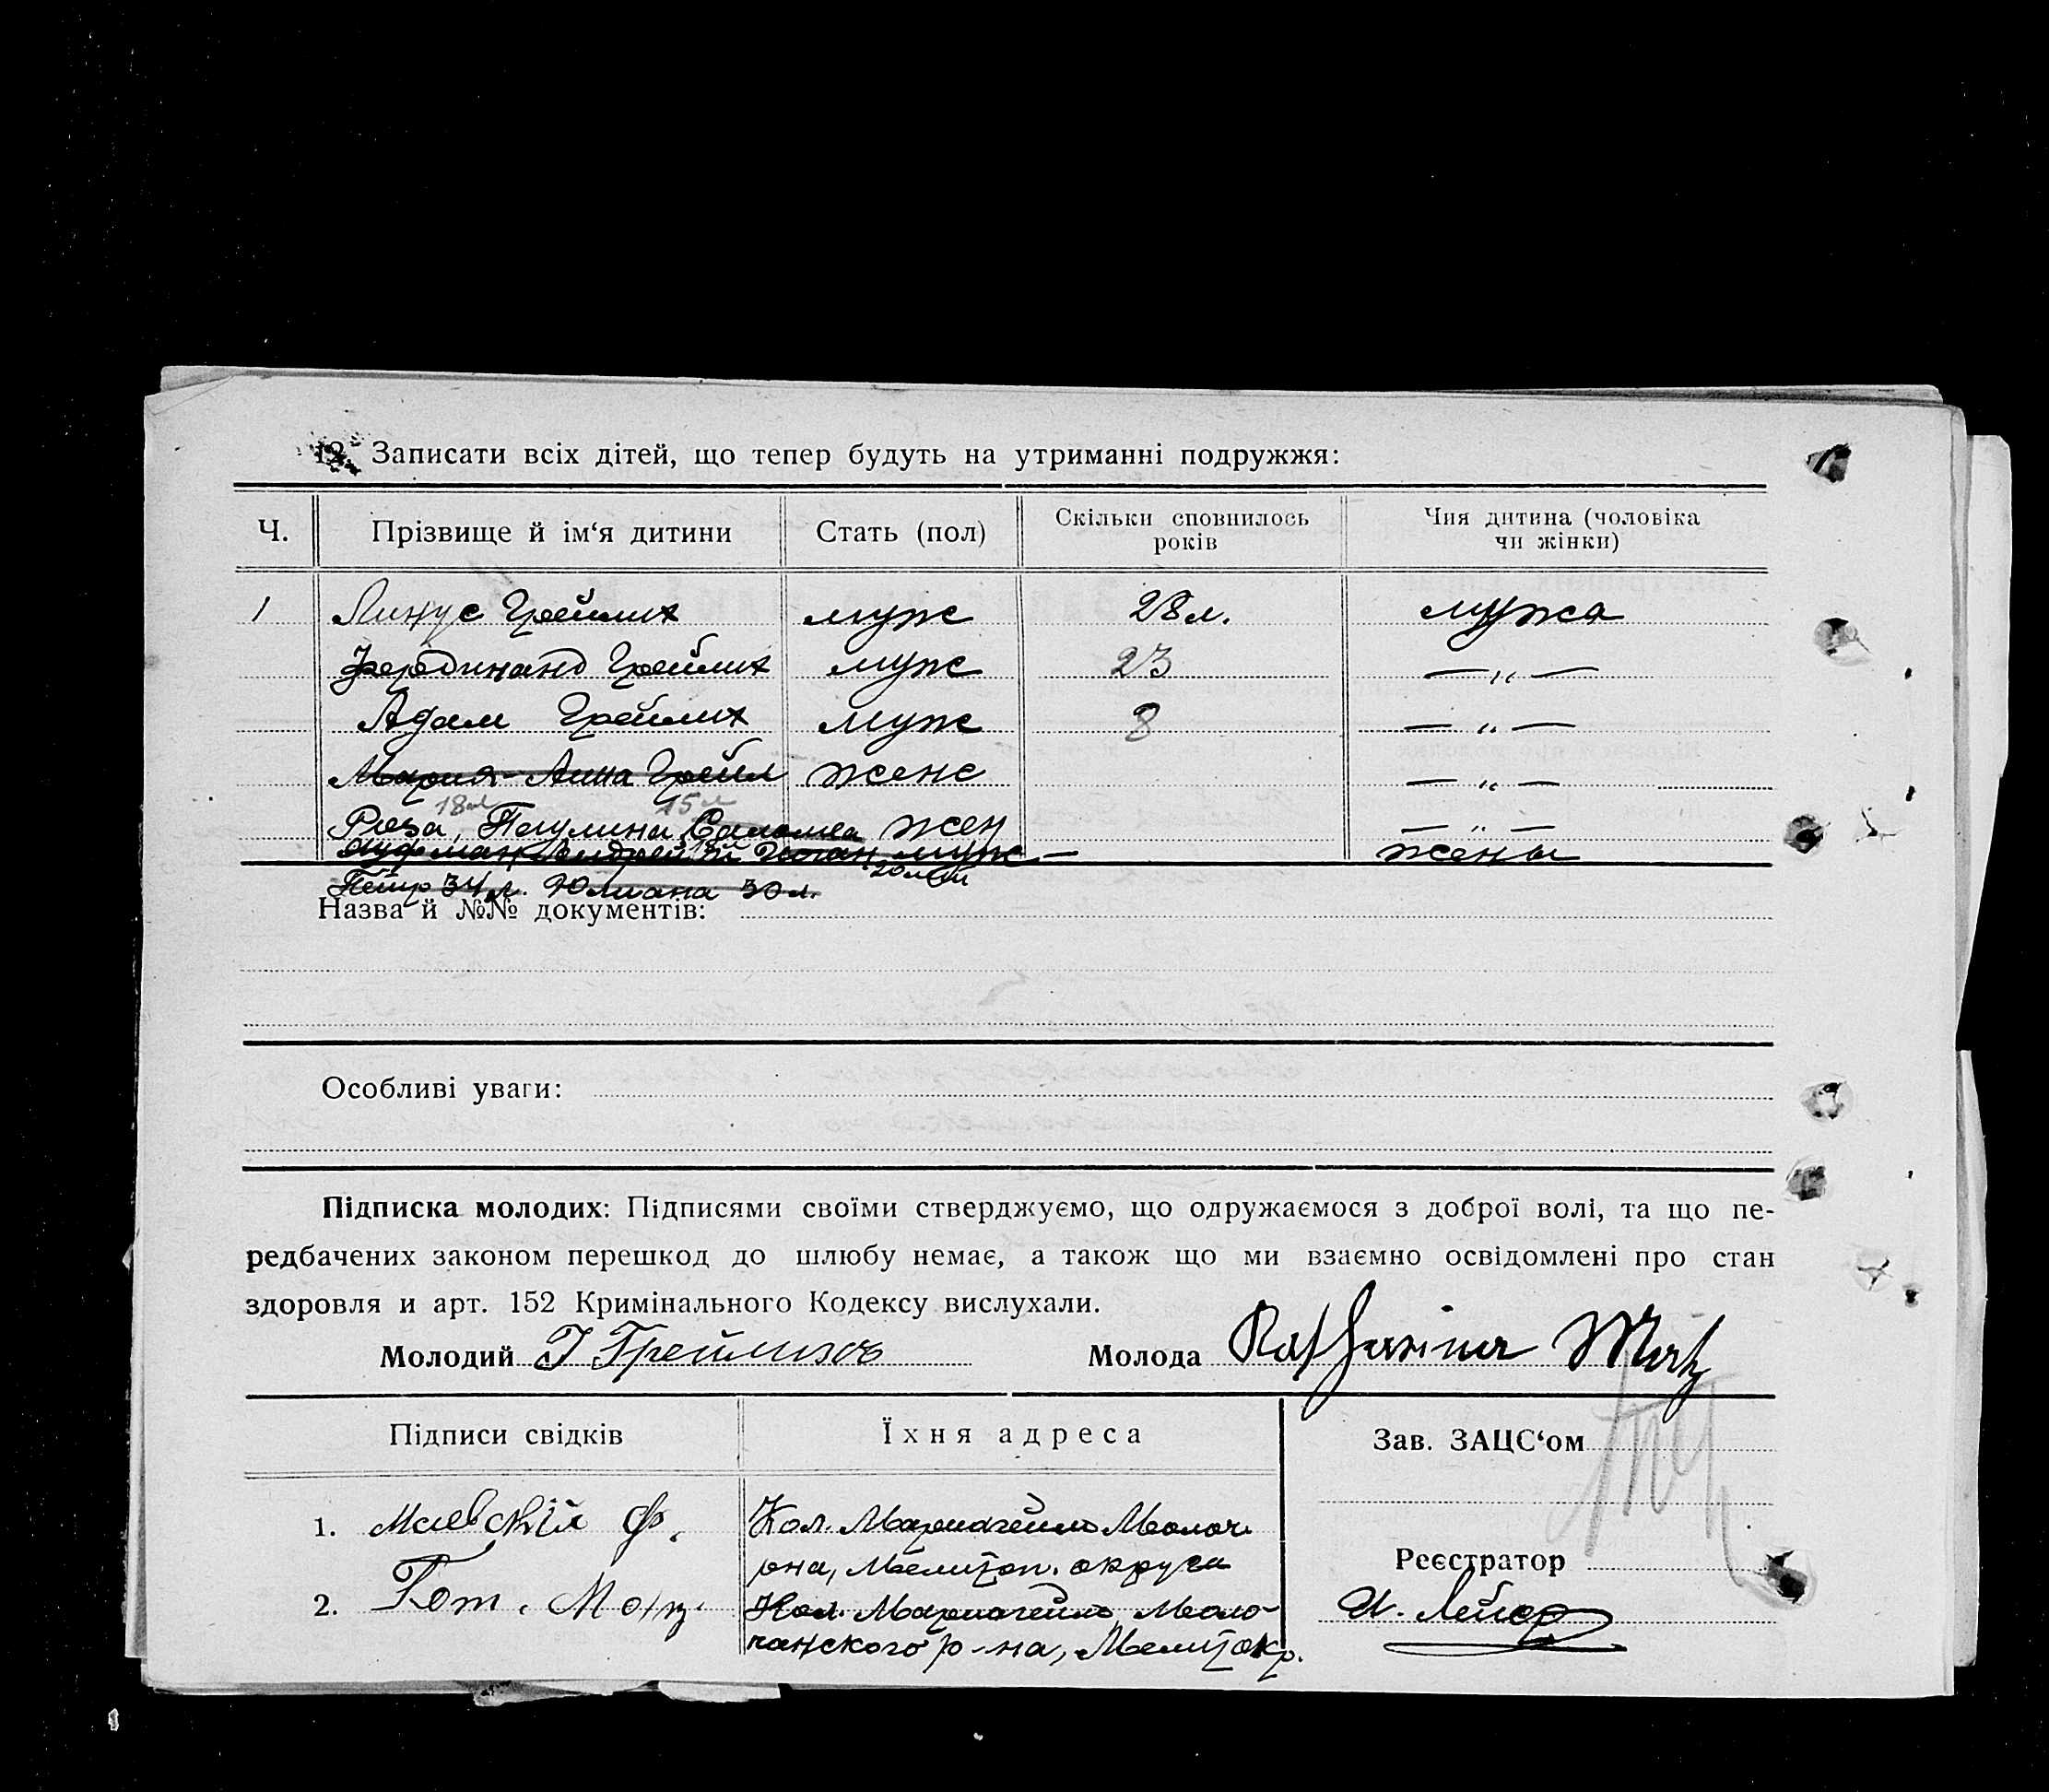 12. Записати всіх дітей, що тепер будуть на утриманні подружжя:
Ч. Прізвище й ім‘я дитини Стать (пол) Скільки сповнилось років Чия дитина (чоловіка чи жінки)
1 Линус Грейлих муж 28 л. мужа
Фердинанд Грейлих муж 23 — „ —
Адам Грейлих муж 8 — „ —
Мария-Анна Грейл женс — „ —
18 л 15 л
Роза, Паулина Саломеа жен — „ —
муж — жены
Петр 34 л. Юлиана 30 л.
Назва й №№ документів:
Особливі уваги:
Підписка молодих: Підписями своїми стверджуємо, що одружаємося з доброї волі, та що пе-
редбачених законом перешкод до шлюбу немає, а також що ми взаємно освідомлені про стан
здоровля и арт. 152 Кримінального Кодексу вислухали.
Молодий І Грейлихъ Молода Katharina Matz
Підписи свідків Їхня адреса Зав. ЗАЦС‘ом
1. Маевскій Ф. Кол. Мариагейм Молоч.
рна, Мелитоп. округа
Реєстратор
2. Гот. Мотз. Кол. Мариагейм, Моло-
чанского р-на, Мелит окр.
И. Лейер